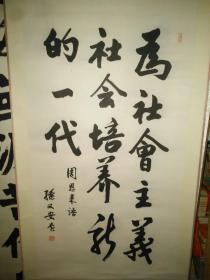 为社會主義
社会培养新
的一代
周恩来语
孫又安書